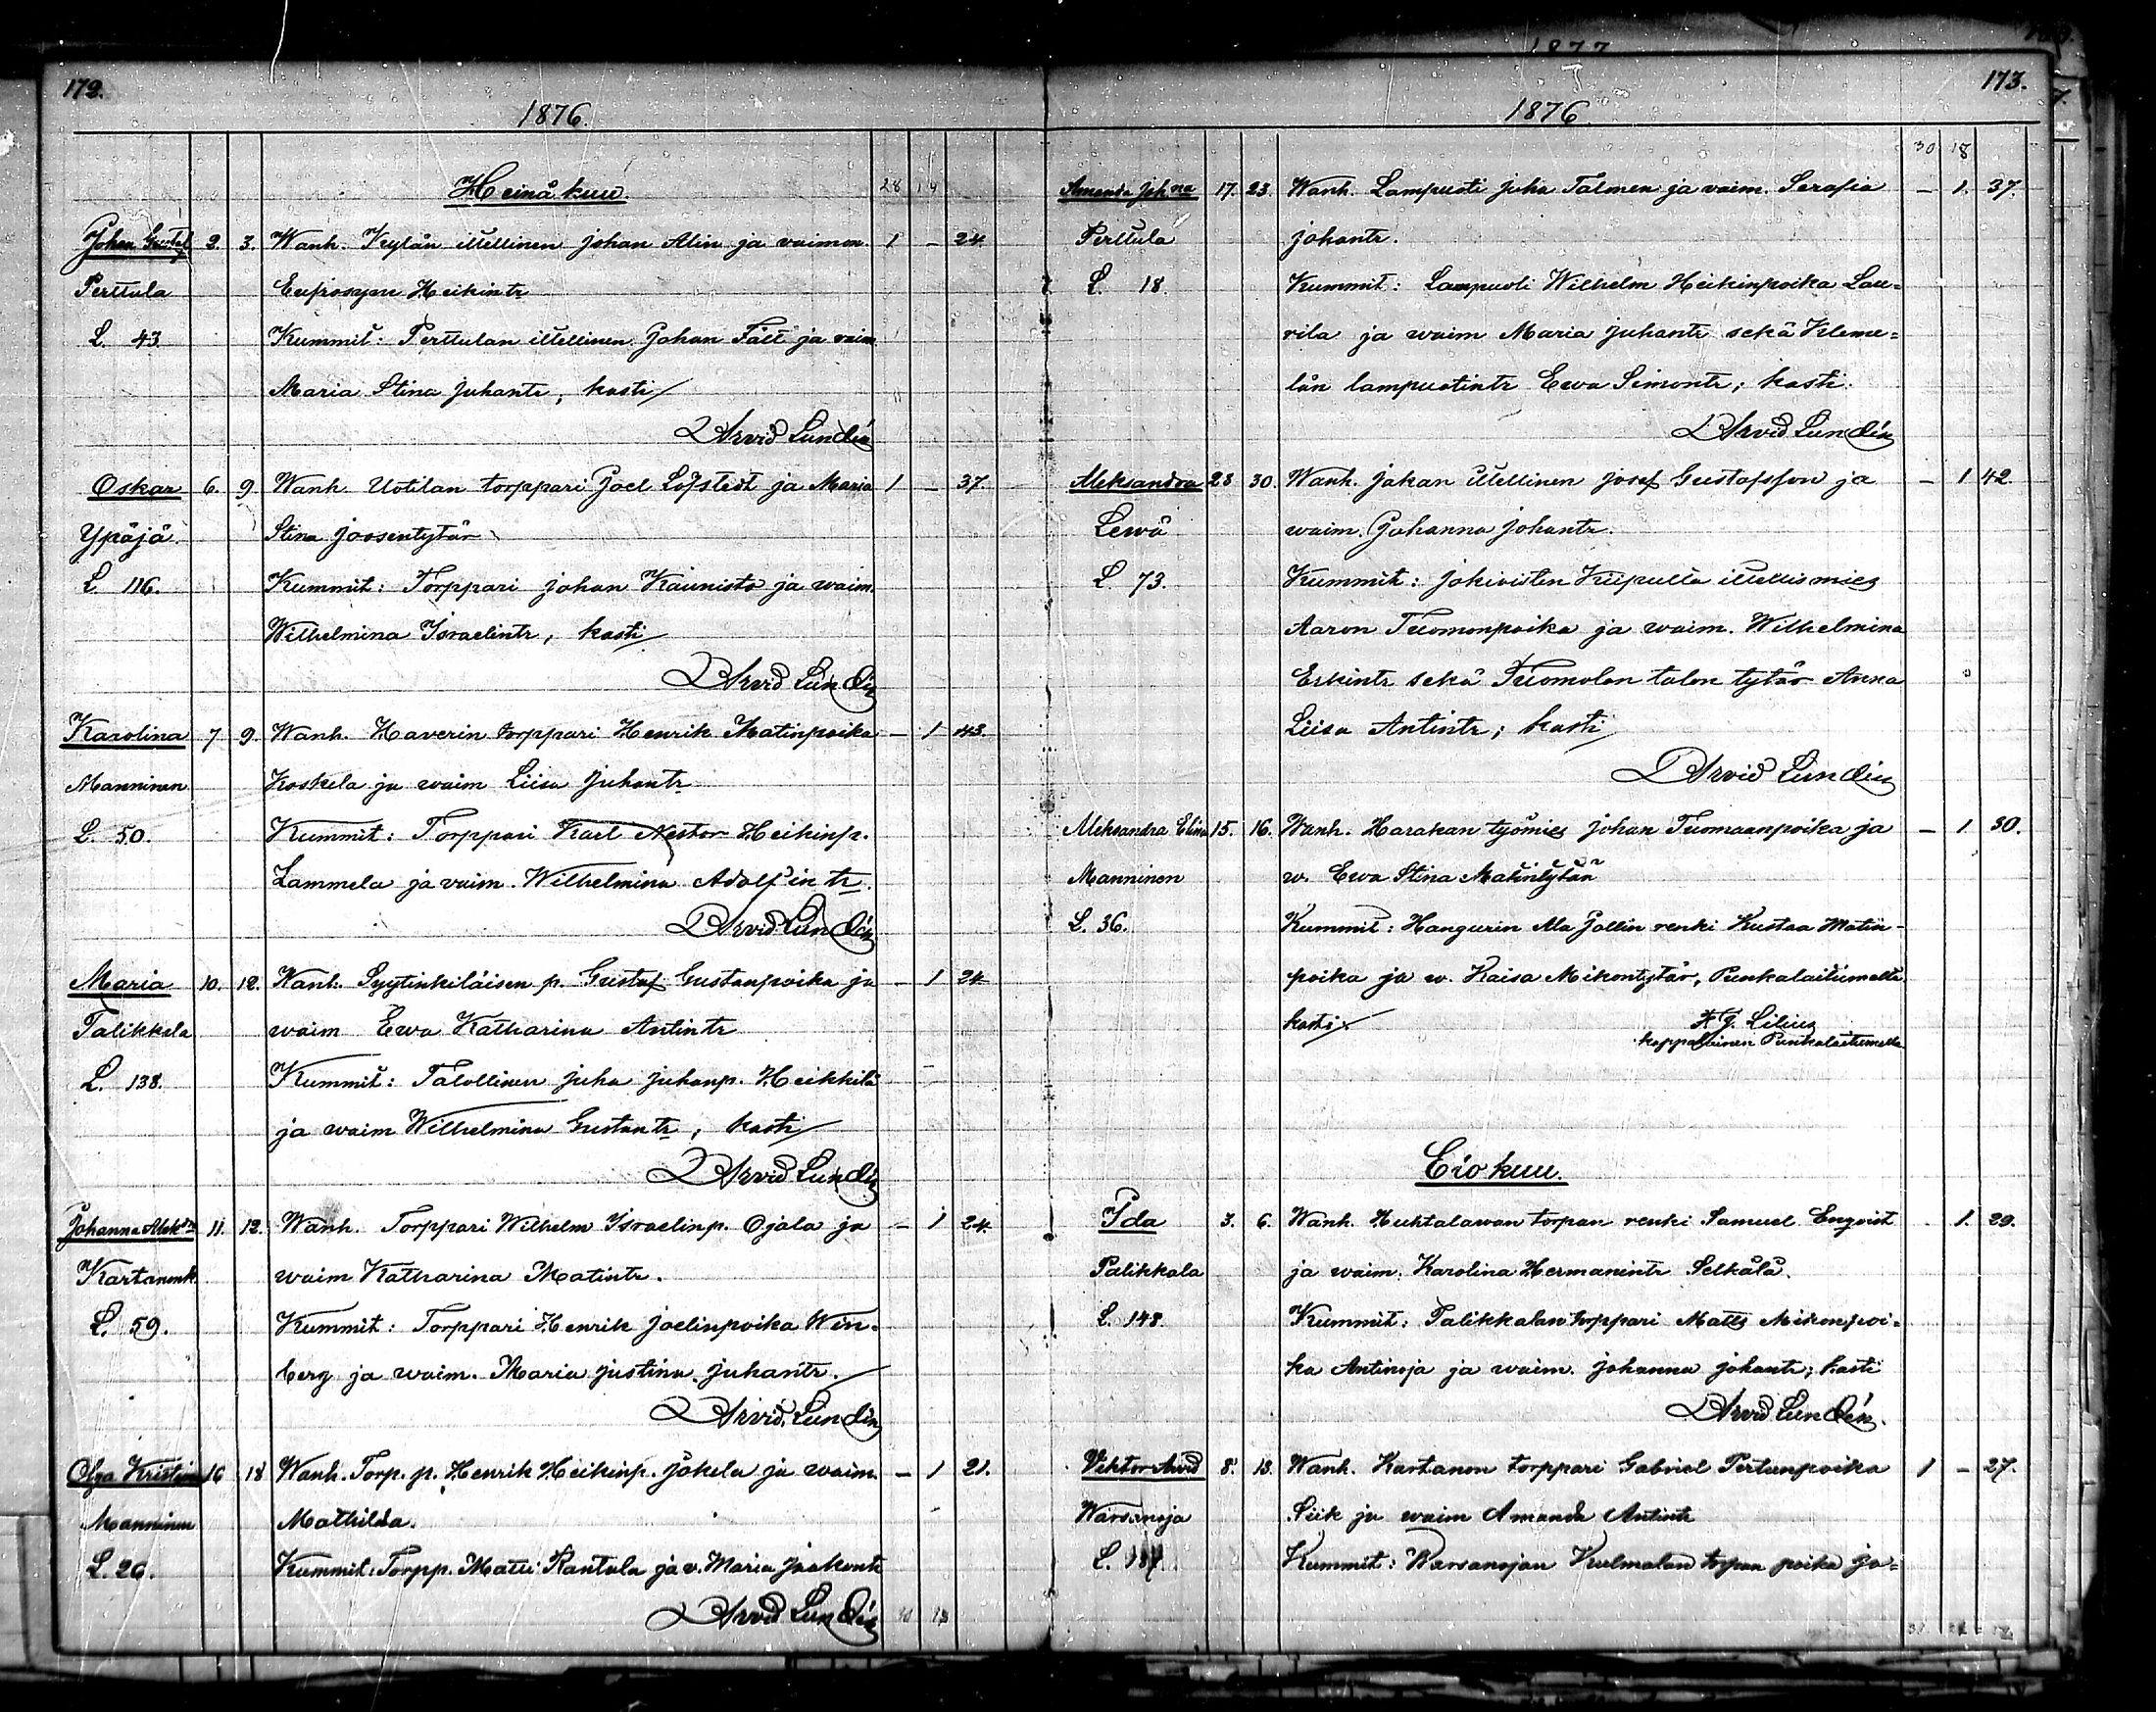 172.
1876.
Heinäkuu.
28 14
Johan Gustaf 2. 3. Wanh. Kylän itellinen Johan Alin ja vaimon 1 – 24
Perttula Eufrosyne Heikintr
L. 43 Kummit: Perttulan itellinen Johan Fält ja vaim
Maria Stina Juhantr, kasti
Arvid Lundén
Oskar 6. 9 Wanh. Uotilan torppari Joel Löfstedt ja Maria 1 – 37.
Ypäjä Stina Joosentytär
L. 116. Kummit: Torppari Johan Kaunisto ja waim.
Wilhelmina Israelintr, kasti
Arvid Lundén
Karolina 7 9. Wanh. Haverin torppari Henrik Matinpoika – 1 43.
Manninen Koskela ja waim Liisa Juhantr
L. 50. Kummit: Torppari Karl Nestor Heikinp.
Lammela ja vaim. Wilhelmina Adolfintr.
Arvid Lundén
Maria 10. 12. Wanh. Syytinkiläisen p. Gustaf Gustanpoika ja – 1 24
Palikkala waim Ewa Katharina Antintr
L. 138. Kummit: Talollinen Juha Juhanp. Heikkilä
ja waim Wilhelmina Gustantr, kasti
Arvid Lundén
Johanna Aleks:dra 11. 12. Wanh. Torppari Wilhelm Israelinp. Ojala ja – 1 24.
Kartanonk waim Katharina Matintr.
L. 59. Kummit: Torppari Henrik Joelinpoika Win-
berg ja waim. Maria Justina Juhantr.
Arvid Lundén
Olga Kristiina 16 18 Wanh. Torp. p. Henrik Heikinp. Jokela ja waim. – 1 21.
Manninen Mathilda.
L. 26. Kummit: Torpp. Matti Rantala ja v. Maria Jaakontr
Arvid Lundén
173.
1876
30 18
Amanda Joh:na 17. 23. Wanh. Lampuoti Juha Talmen ja vaim. Serafia – 1. 37.
Perttula Johantr.
L. 18. Kummit: Lampuoti Wilhelm Heikinpoika Lau-
rila ja waim Maria Juhantr sekä Kleme-
län lampuotintr Ewa Simontr; kasti.
Arvid Lundén
Aleksandra 28 30. Wanh. Jakan itellinen Josef Gustafsson ja – 1 42.
Lewä waim. Johanna Johantr.
L. 73. Kummit: Jokioisten Kiipulla itellismies
Aaron Tuomonpoika ja waim. Wilhelmina
Erkintr sekä Tuomolan talon tytär Anna
Liisa Antintr; kasti
Arvid Lundén
Aleksandra Elina 15. 16. Wanh. Harakan työmies Johan Tuomaanpoika ja – 1 30.
Manninen w. Ewa Stina Matintytär
L. 36. Kummit: Hangurin Ala Jallin renki Kustaa Matin-
poika ja w. Kaisa Mikontytär, Punkalaitumelta.
kasti F G. Lilius
kappalainen Punkalaitumella
Elokuu.
Ida 3. 6. Wanh. Huhtalawan torpan renki Samuel Enqvist 1. 29.
Palikkala ja waim. Karolina Hermanintr Selkälä.
L. 148. Kummit: Palikkalan torppari Matts Mikonpoi-
ka Antinoja ja waim. Johanna Johantr; kasti
Arvid Lundén.
Viktor Arvid 8. 13. Wanh. Kartanon torppari Gabriel Pertunpoika 1 – 27.
Warsanoja Siik ja waim Amanda Antintr
Kummit: Warsanojan Kulmalan torpan poika Jo-